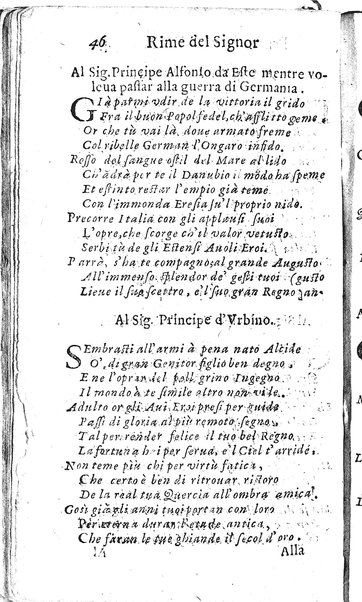 46 Rime del Signor
Al Sig. Principe Alfonso da Este mentre vo-
leua passar alla guerra di Germania.
GIà parmi vdir de la vittoria il grido
Fra il buon Popol fedel, ch'afflitto geme,
Or che tù vai là, doue armato freme
Col ribelle German l'Ongaro infido.
Rosso del sangue ostil del Mare al lido
Ch'ādrà per te il Danubio il mōdo ha speme
Et estinto restar l'empio già teme
Con l'immonda Eresia sù'l proprio nido.
Precorre Italia con gli applausi suoi
L'opre, che scorge ch'il valor vetusto
Serbi tù de gli Estensi Auoli Eroi.
Parrà, s'ha te compagno, al grande Augusto
All'immenso splendor de' gesti tuoi (gusto
Lieue il suo scettro, e'l suo gran Regno an-
Al Sig. Principe d'Vrbino.
SEmbrasti all'armi à pena nato Alcide
O', di gran Genitor figlio ben degno,
E ne l'opra del pellegrino Ingegno
Il mondo à te simile altro non vide.
Adulto or gli Aui Eroi presi per guide
Passi di gloria al più remoto segno,
Tal per render felice il tuo bel Regno
La fortuna hai per serua, e'l Ciel t'arride.
Non teme più chi per virtù fatica,
Che certo è ben di ritrouar ristoro
De la real tua Quercia all'ombra amica.
Così già gli anni tuoi portan con loro
Per eterna durar l'etade antica,
Che faran le tue ghiande il secol d'oro.
Alla